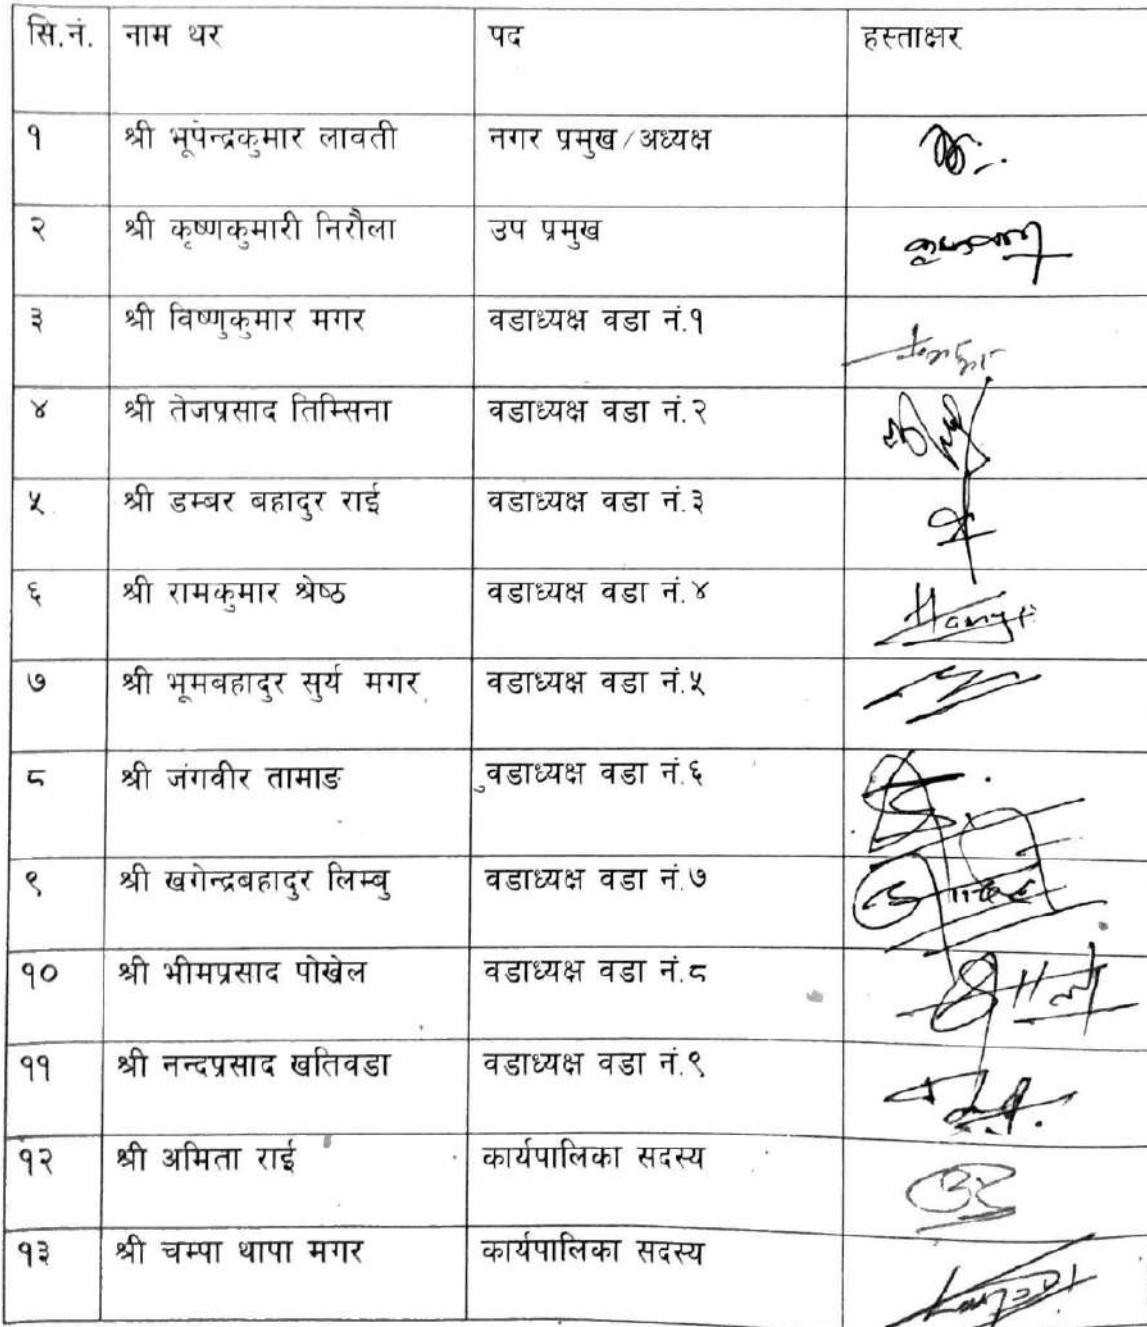 सि.नं. नाम थर पद हस्ताक्षर
१ श्री भूपेन्द्रकुमार लावती नगर प्रमुख/अध्यक्ष
२ श्री कृष्णकुमारी निरौला उप प्रमुख
३ श्री विष्णुकुमार मगर वडाध्यक्ष वडा नं.१
४ श्री तेजप्रसाद तिम्सिना वडाध्यक्ष वडा नं.२
५ श्री डम्बर बहादुर राई वडाध्यक्ष वडा नं.३
६ श्री रामकुमार श्रेष्ठ वडाध्यक्ष वडा नं.४
७ श्री भूमबहादुर सुर्य मगर वडाध्यक्ष वडा नं.५
८ श्री जंगवीर तामाङ वडाध्यक्ष वडा नं.६
९ श्री खगेन्द्रबहादुर लिम्बु वडाध्यक्ष वडा नं.७
१० श्री भीमप्रसाद पोखेल वडाध्यक्ष वडा नं.८
११ श्री नन्दप्रसाद खतिवडा वडाध्यक्ष वडा नं.९
१२ श्री अमिता राई कार्यपालिका सदस्य
१३ श्री चम्पा थापा मगर कार्यपालिका सदस्य